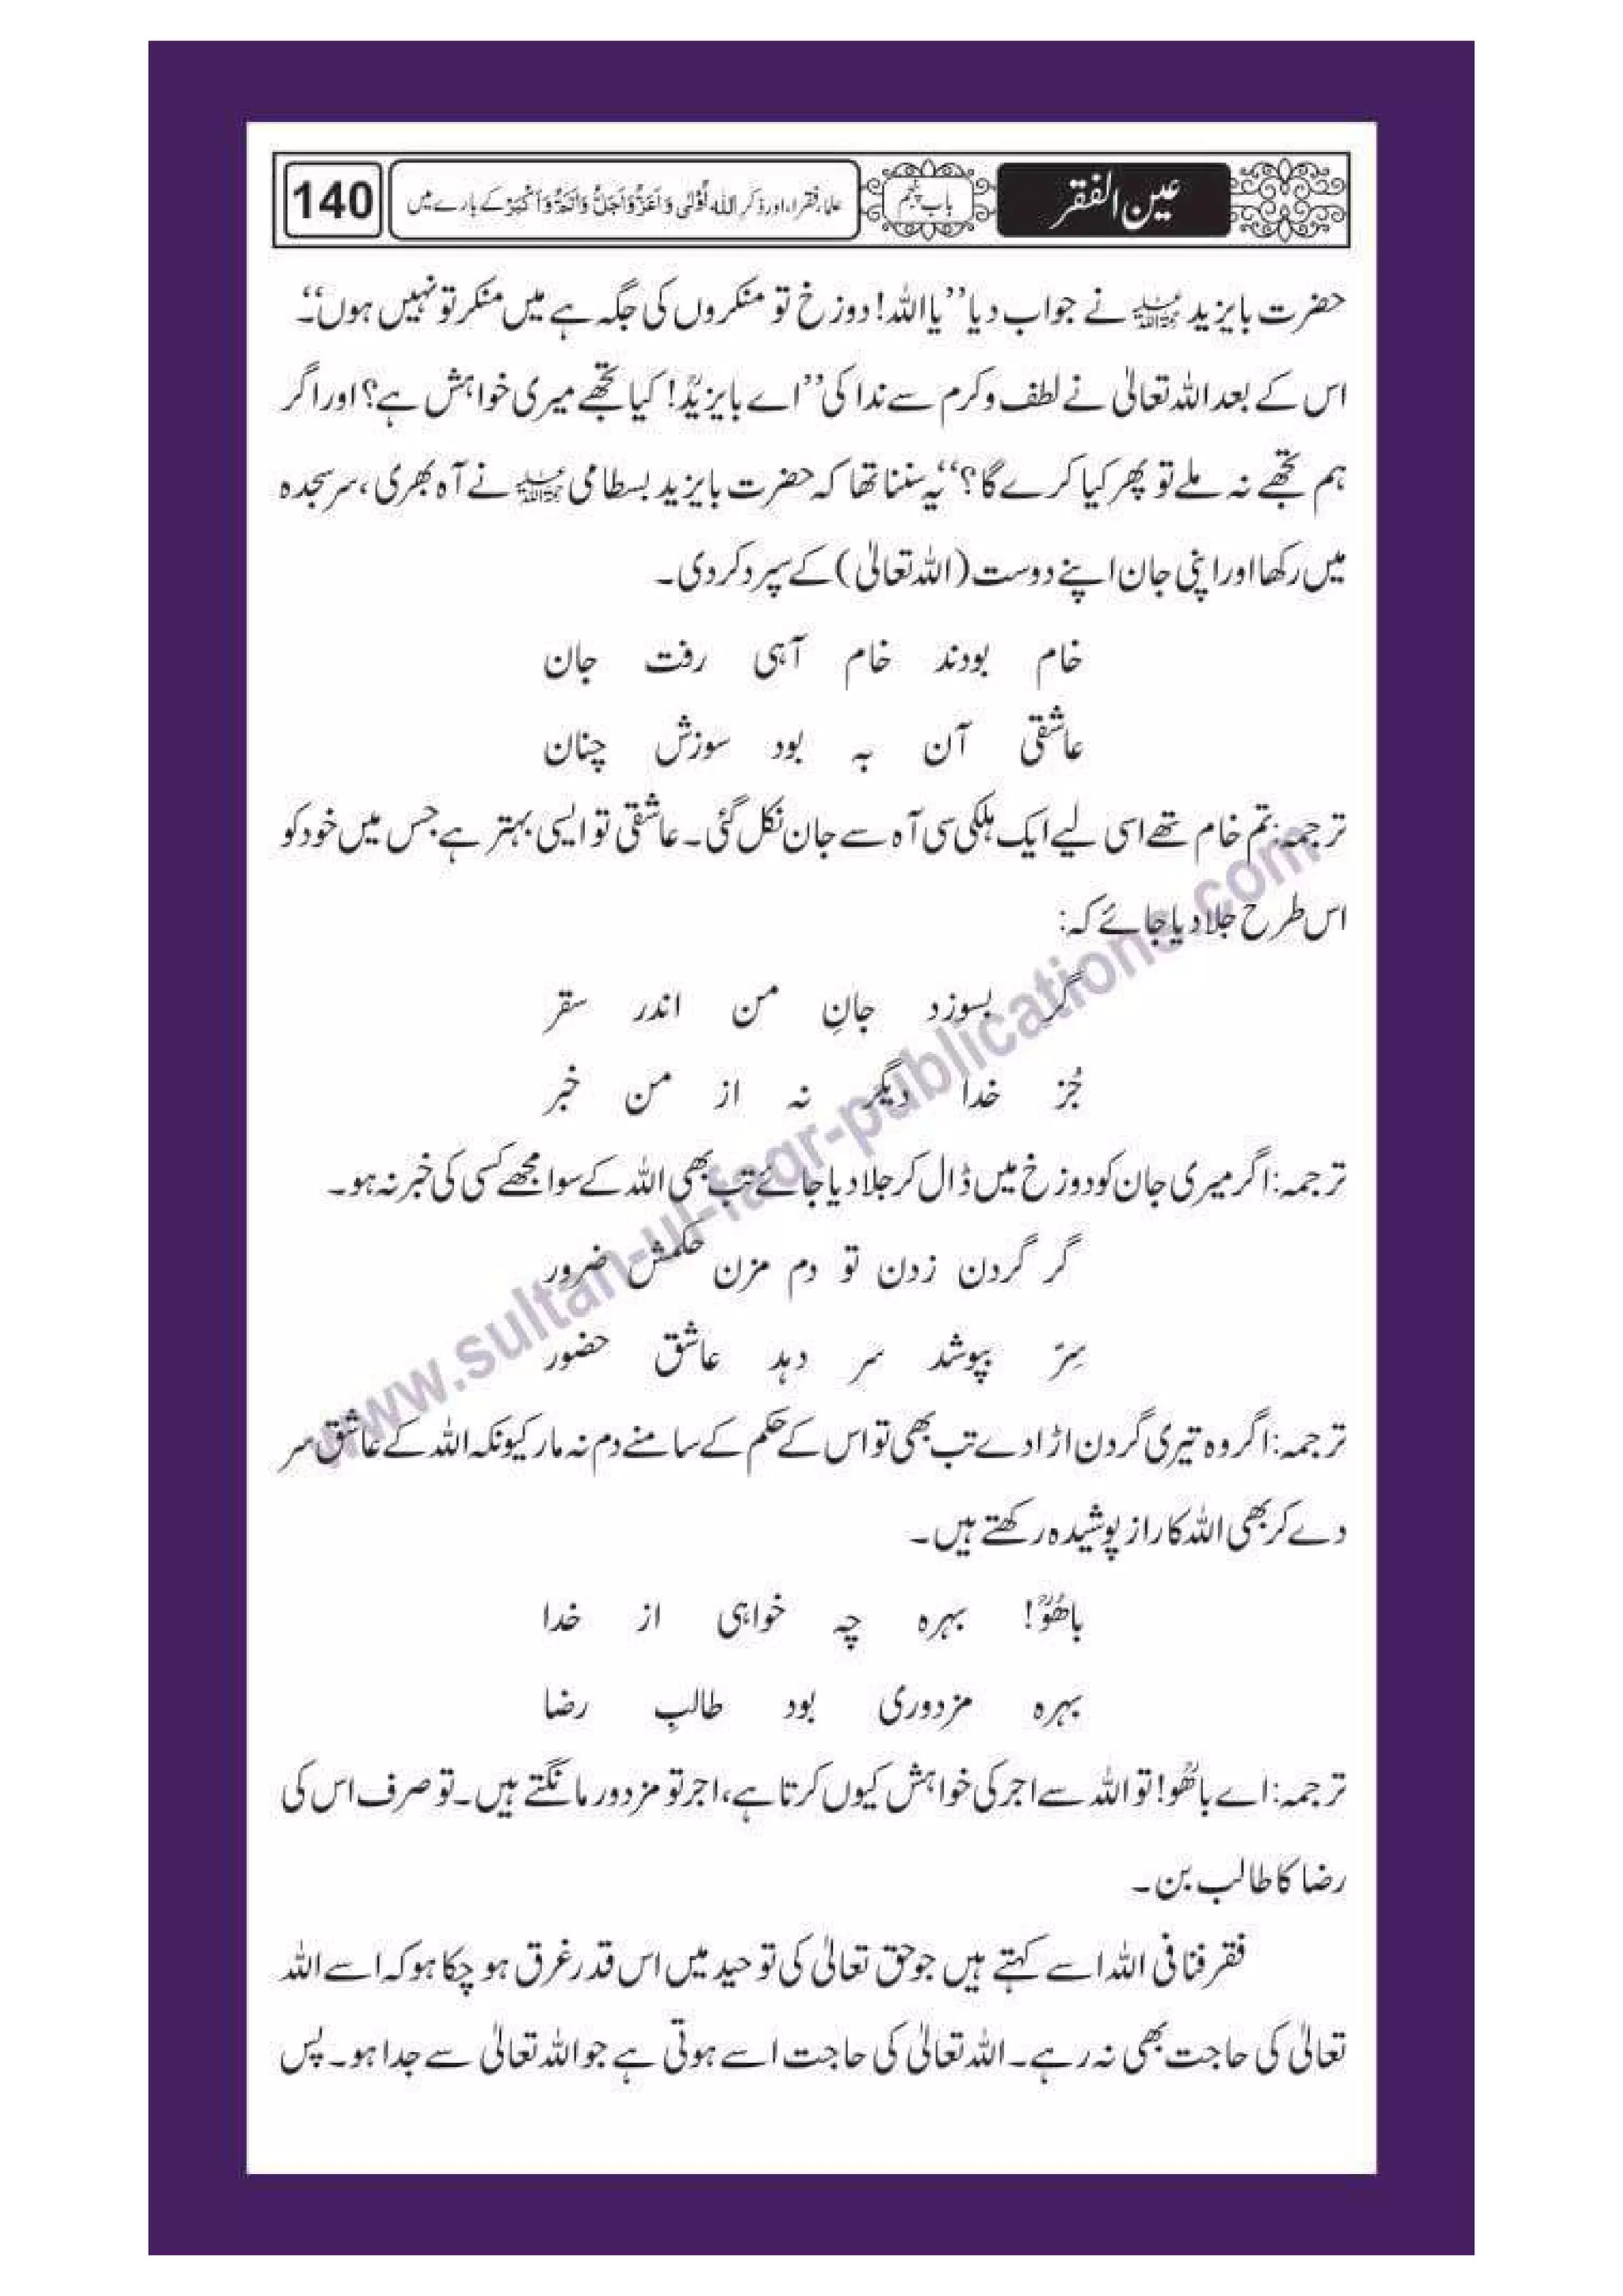 عین الفقر
باب پنجم
علما، فقراء اور ذکر اللہ اُوْلٰی وَاَعَزُّ وَاَجَلُّ وَاَتَمُّ وَاَکْبَرُ کے بارے میں
140
حضرت بایزید رحمۃ اللہ علیہ نے جواب دیا ’’یا اللہ! دوزخ تو منکروں کی جگہ ہے میں منکر تو نہیں ہوں‘‘۔
اس کے بعد اللہ تعالیٰ نے لطف وکرم سے ندا کی ’’اے بایزیدؒ! کیا تجھے میری خواہش ہے؟ اور اگر
ہم تجھے نہ ملے تو پھر کیا کرے گا؟‘‘ یہ سننا تھا کہ حضرت بایزید بسطامی رحمۃ اللہ علیہ نے آہ بھری، سر سجدہ
میں رکھا اور اپنی جان اپنے دوست (اللہ تعالیٰ) کے سپرد کر دی۔
خام بودند خام آہی رفت جان
عاشقی آن بہ بود سوزش چنان
ترجمہ: تم خام تھے اسی لیے ایک ہلکی سی آہ سے جان نکل گئی۔ عاشقی تو ایسی بہتر ہے جس میں خود کو
اس طرح جلا دیا جائے کہ:
گر بسوزد جانِ من اندر سقر
جُز خدا دیگر نہ از من خبر
ترجمہ: اگر میری جان کو دوزخ میں ڈال کر جلا دیا جائے تب بھی اللہ کے سوا مجھے کسی کی خبر نہ ہو۔
گر گردن زدن تو دم مزن حکمش ضرور
سِرّ بپوشد سر دہد عاشق حضور
ترجمہ: اگر وہ تیری گردن اڑا دے تب بھی تو اس کے حکم کے سامنے دم نہ مار کیونکہ اللہ کے عاشق سر
دے کر بھی اللہ کا راز پوشیدہ رکھتے ہیں۔
باھُوؒ! بہرہ چہ خواہی از خدا
بہرہ مزدوری بود طالبِ رضا
ترجمہ: اے باھُوؒ! تو اللہ سے اجر کی خواہش کیوں کرتا ہے، اجر تو مزدور مانگتے ہیں۔ تو صرف اس کی
رضا کا طالب بن۔
فقر فنا فی اللہ اسے کہتے ہیں جو حق تعالیٰ کی توحید میں اس قدر غرق ہو چکا ہو کہ اسے اللہ
تعالیٰ کی حاجت بھی نہ رہے۔ اللہ تعالیٰ کی حاجت اسے ہوتی ہے جو اللہ تعالیٰ سے جدا ہو۔ پس
www.sultan-ul-faqr-publications.com